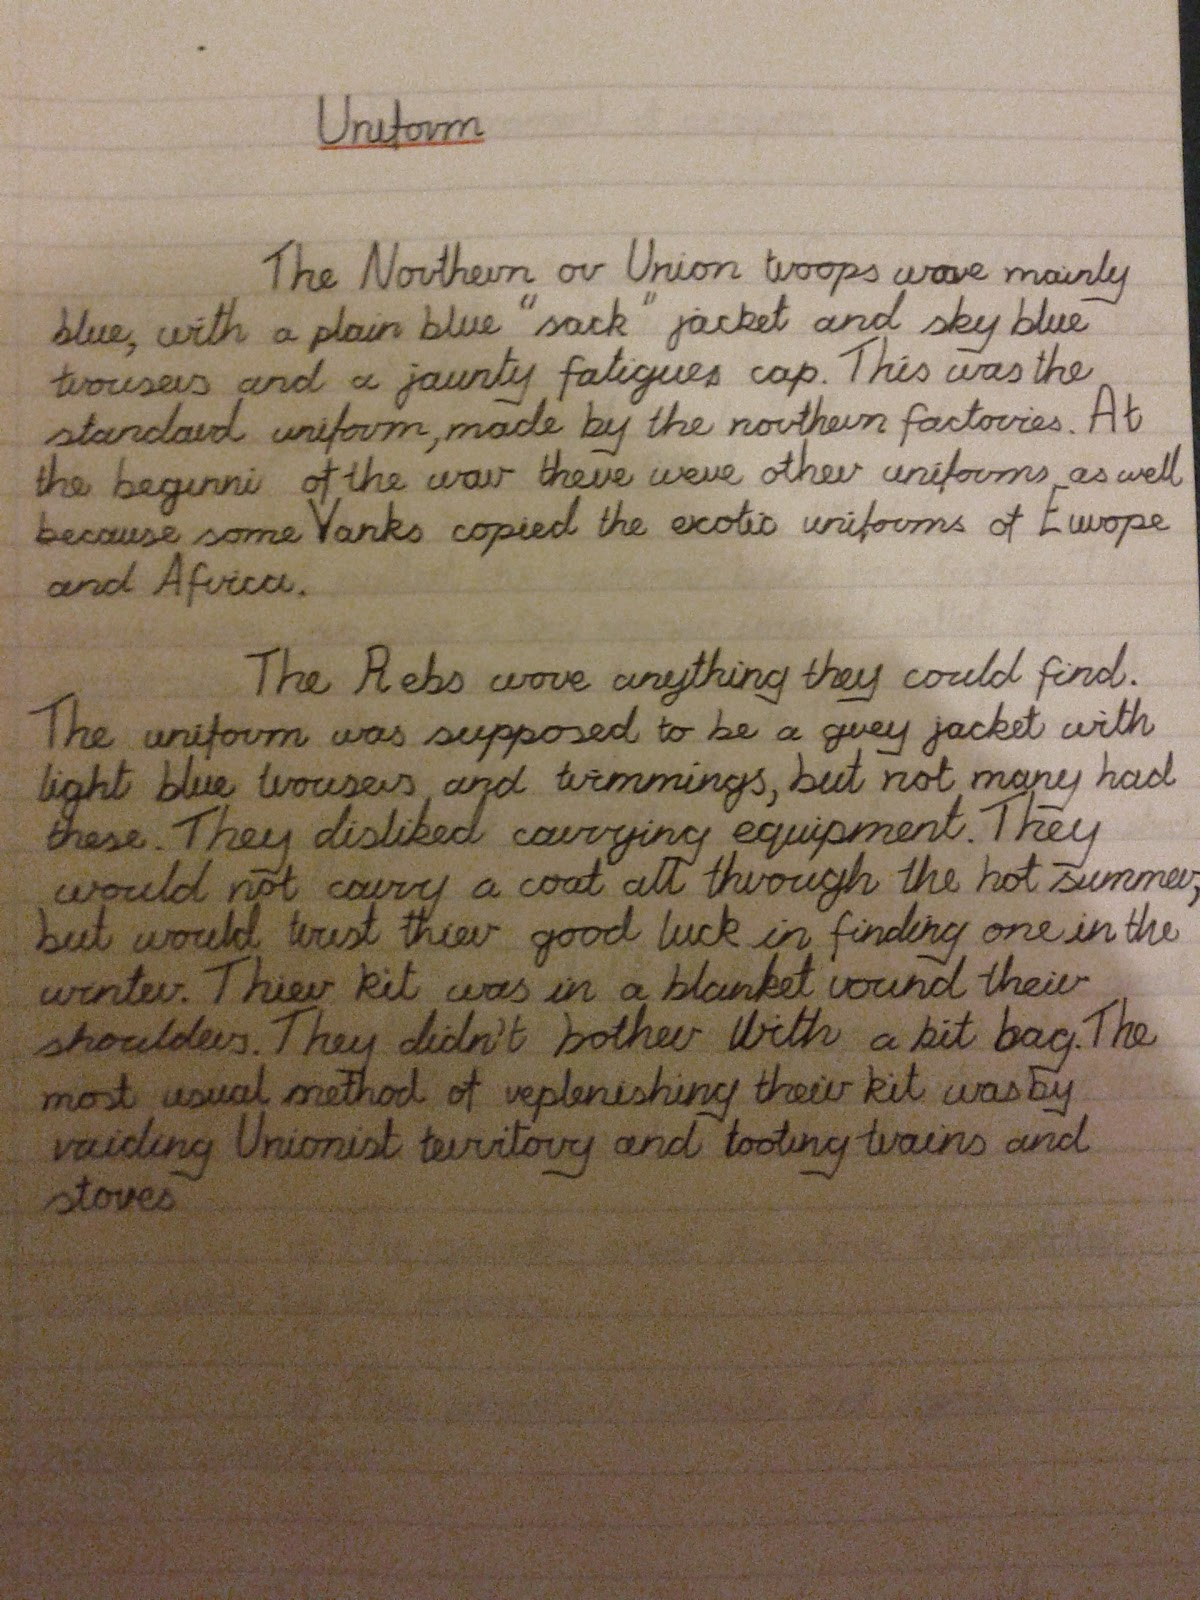 Uniform
The Northern or Union troops wore mainly
blue, with a plain blue "sack" jacket and sky blue
trousers and a jaunty fatigues cap. This was the
standard uniform, made by the northern factories. At
the beginni of the war there were other uniforms as well
because some Yanks copied the exotic uniforms of Europe
and Africa.
The Rebs wore anything they could find.
The uniform was supposed to be a grey jacket with
light blue trousers and trimmings, but not many had
these. They disliked carrying equipment. They
would not carry a coat all through the hot summer,
but would trust thier good luck in finding one in the
winter. Thier kit was in a blanket round their
shoulders. They didn't bother with a kit bag. The
most usual method of replenishing their kit was by
raiding Unionist territory and looting trains and
stores